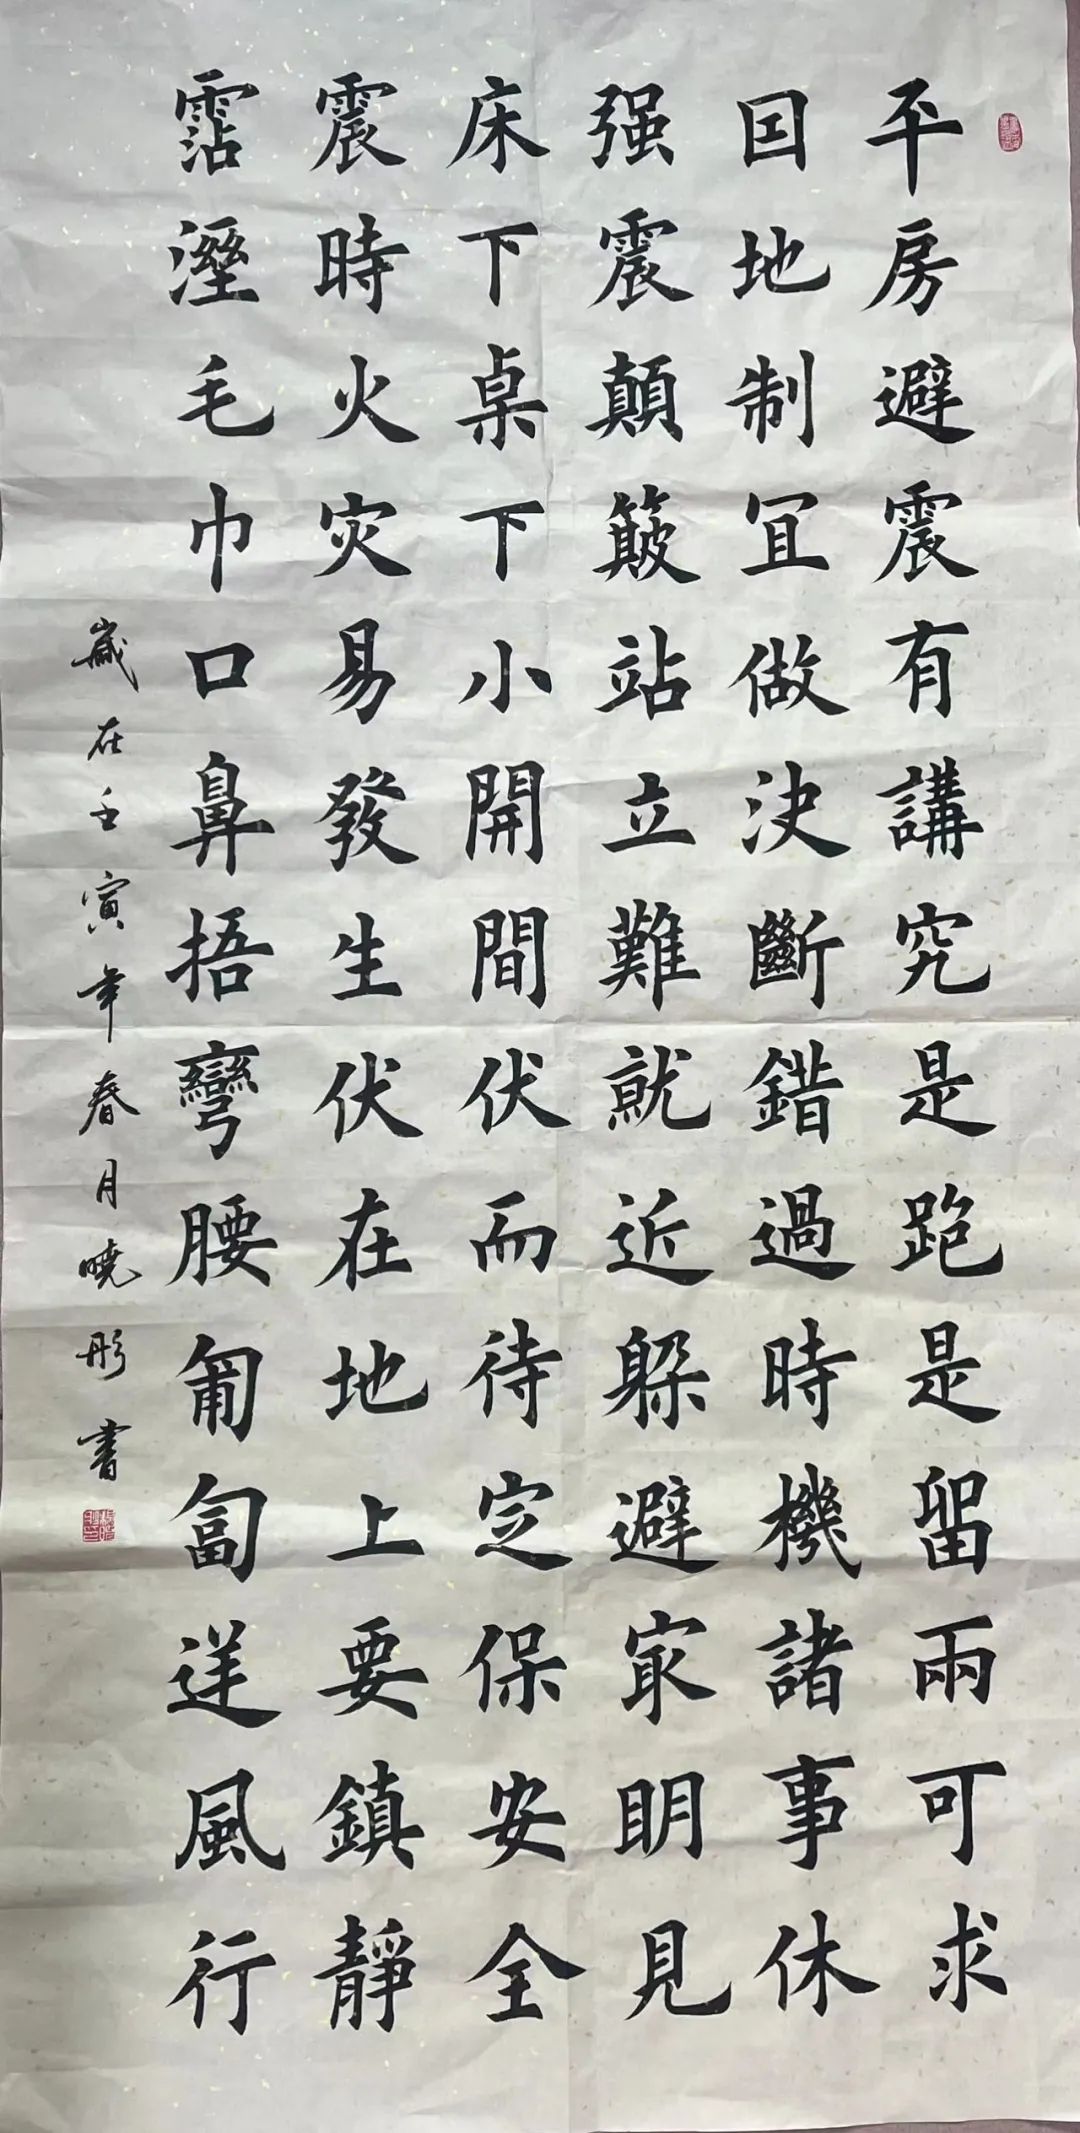 平房避震有講究是跑是留兩可求
因地制宜做決斷錯過時機諸事休
强震顛簸站立難就近躲避最明見
床下桌下小開間伏而待定保安全
震時火災易發生伏在地上要鎮靜
霑溼毛巾口鼻捂彎腰匍匐逆風行
歲在壬寅年春月曉彤書